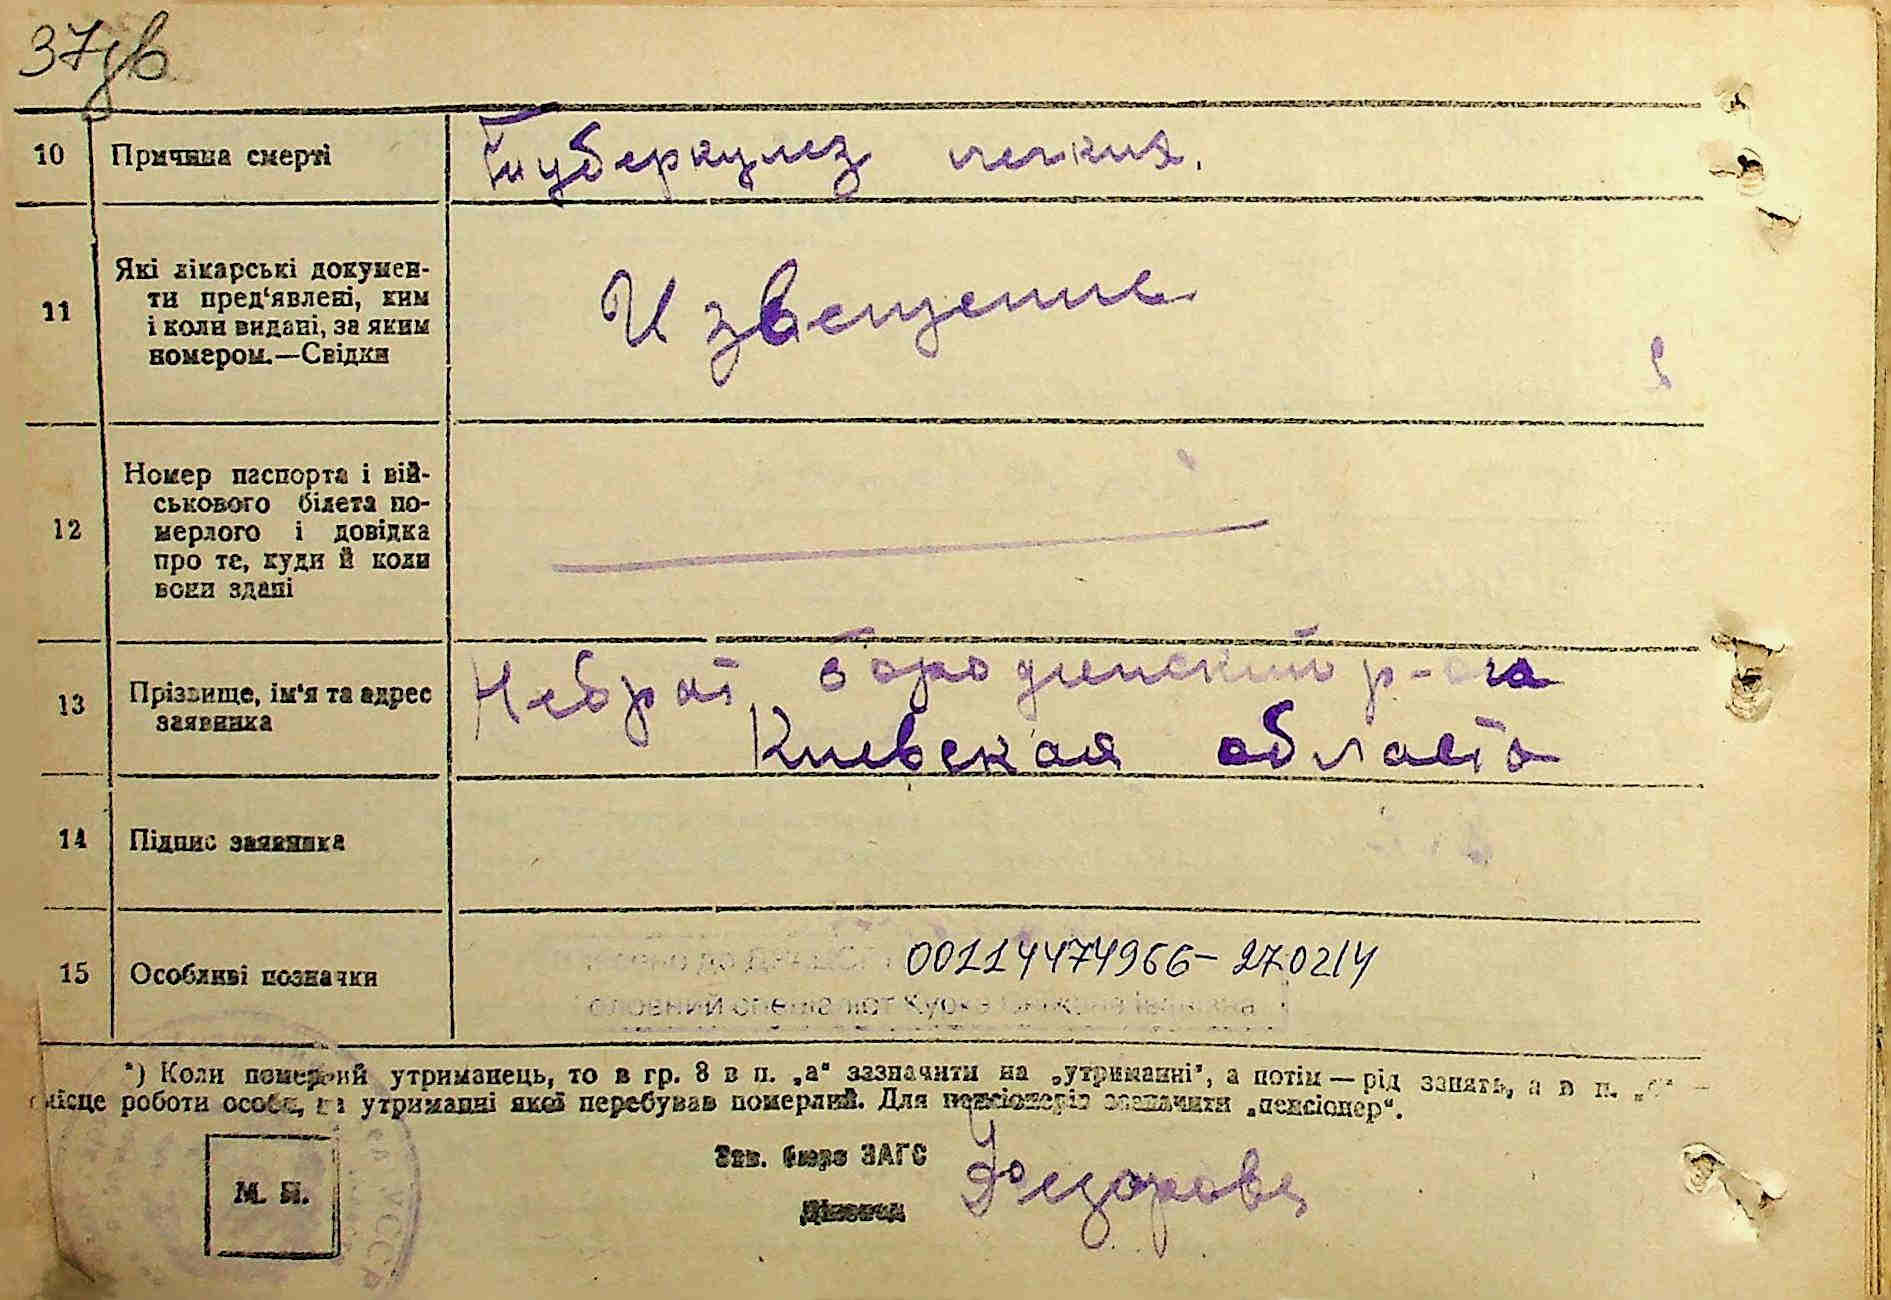 37зв
10 Причина смерті Туберкулез легких.
11 Які лікарські докумен-
ти пред‘явлені, ким
і коли видані, за яким
номером.—Свідки
Извещение
12 Номер паспорта і вій-
ськового білета по-
мерлого і довідка
про те, куди й коли
вони здані
13 Прізвище, ім‘я та адрес
заявника
Небрат Бородянский р-она
Киевская область
14 Підпис заявника
15 Особливі позначки
00114474966-270214
Головний спеціаліст
*) Коли померлий утриманець, то в гр. 8 в п. „а“ зазначити на „утриманні“, а потім — рід занять, а в п.
місце роботи особи, на утриманні якої перебував померлий. Для пенсіонерів зазначити „пенсіонер“.
М. П.
Зав. бюро ЗАГС
Діловод
Федорова
УССР